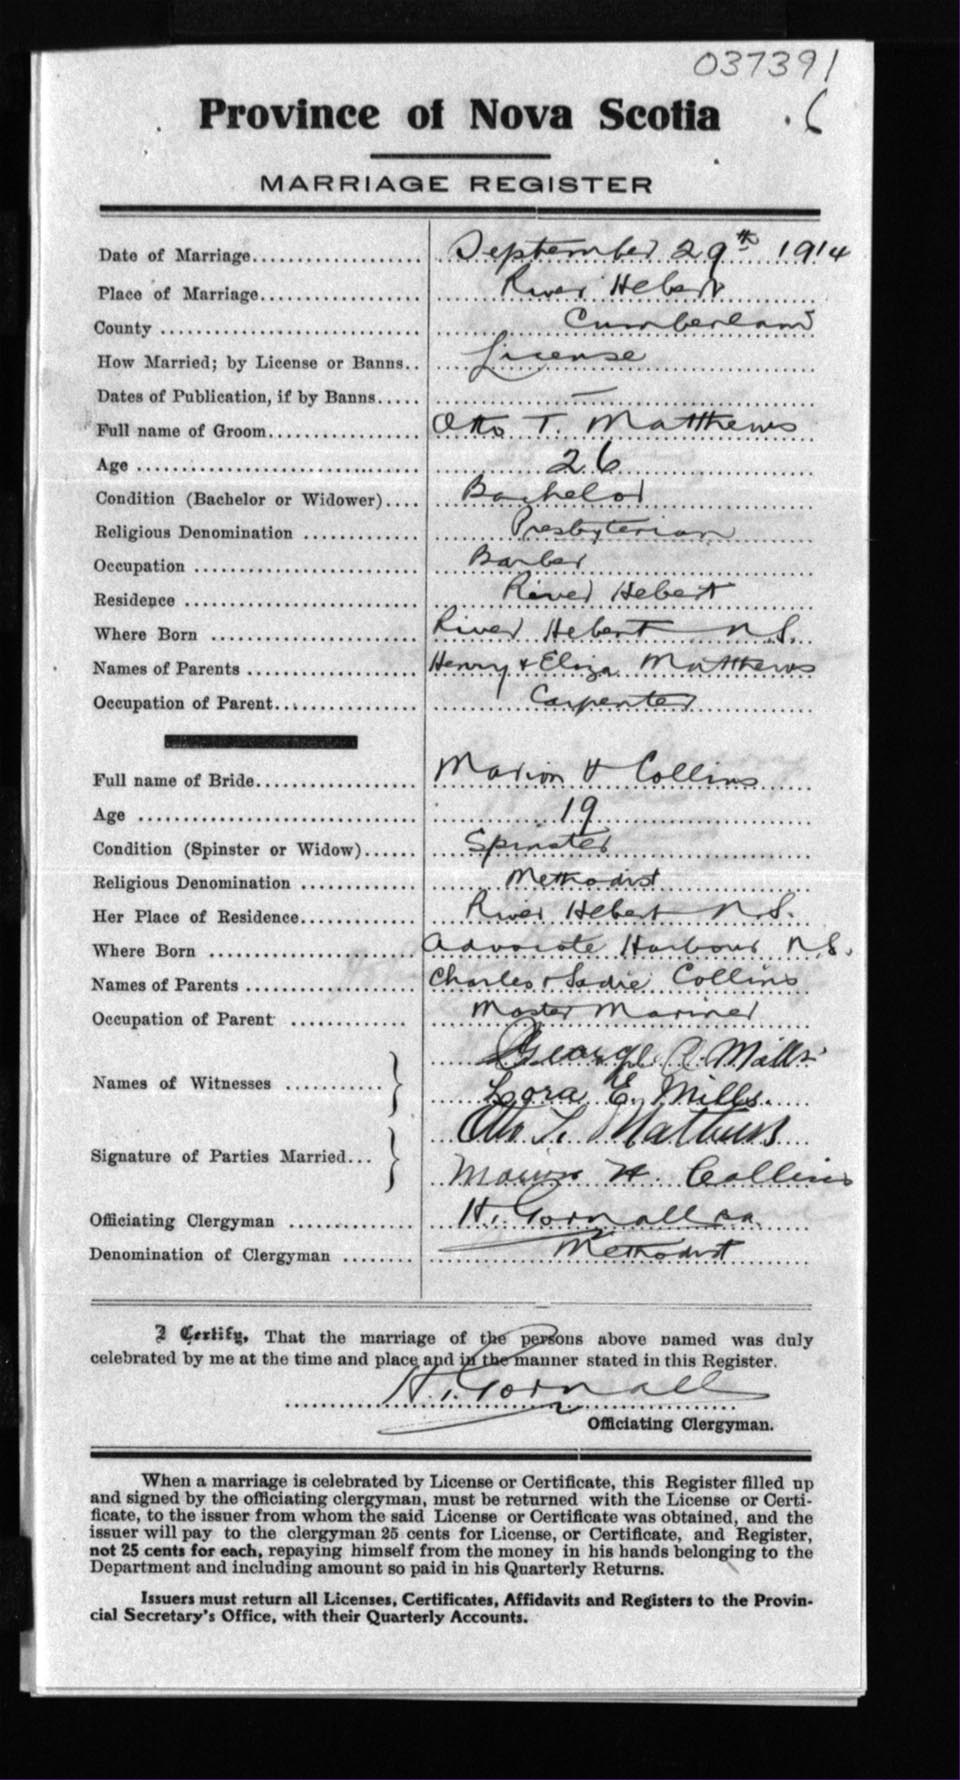 037391
.6
Province of Nova Scotia
MARRIAGE REGISTER
Date of Marriage.................... September 29th 1914
Place of Marriage................... River Hebert
County .............................. Cumberland
How Married; by License or Banns.. License
Dates of Publication, if by Banns..... —
Full name of Groom.................. Otto T. Matthews
Age ................................. 26
Condition (Bachelor or Widower).... Bachelor
Religious Denomination ............. Presbyterian
Occupation .......................... Barber
Residence ........................... River Hebert
Where Born ........................ River Hebert N.S.
Names of Parents .................... Henry & Eliza Matthews
Occupation of Parent................. Carpenter
Full name of Bride................... Marion H Collins
Age ................................. 19
Condition (Spinster or Widow)...... Spinster
Religious Denomination ............. Methodist
Her Place of Residence.............. River Hebert N.S.
Where Born ........................ Advocate Harbour N.S.
Names of Parents .................... Charles & Sadie Collins
Occupation of Parent .............. Master Mariner
Names of Witnesses ........... } George Mills
Lora E. Mills.
Signature of Parties Married... } Otto T. Mathews
Marion H. Collins
Officiating Clergyman .............. H. Gornall
Denomination of Clergyman ........ Methodist
I Certify, That the marriage of the persons above named was duly
celebrated by me at the time and place and in the manner stated in this Register.
H. Gornall
Officiating Clergyman.
When a marriage is celebrated by License or Certificate, this Register filled up
and signed by the officiating clergyman, must be returned with the License or Certi-
ficate, to the issuer from whom the said License or Certificate was obtained, and the
issuer will pay to the clergyman 25 cents for License, or Certificate, and Register,
not 25 cents for each, repaying himself from the money in his hands belonging to the
Department and including amount so paid in his Quarterly Returns.
Issuers must return all Licenses, Certificates, Affidavits and Registers to the Provin-
cial Secretary's Office, with their Quarterly Accounts.